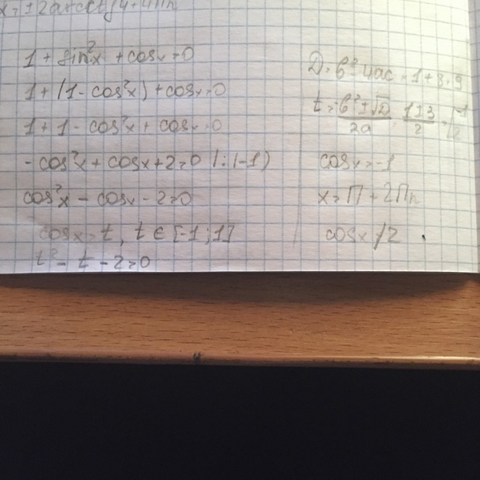 1 + sin²x + cosx = 0
1 + (1 - cos²x) + cosx = 0
1 + 1 - cos²x + cosx = 0
- cos²x + cosx + 2 = 0 |:(-1)
cos²x - cosx - 2 = 0
cosx = t, t ∈ [-1;1]
t² - t - 2 = 0
D = b² - 4ac = 1 + 8 = 9
cosx = -1
x = П + 2Пn
cosx ≠ 2